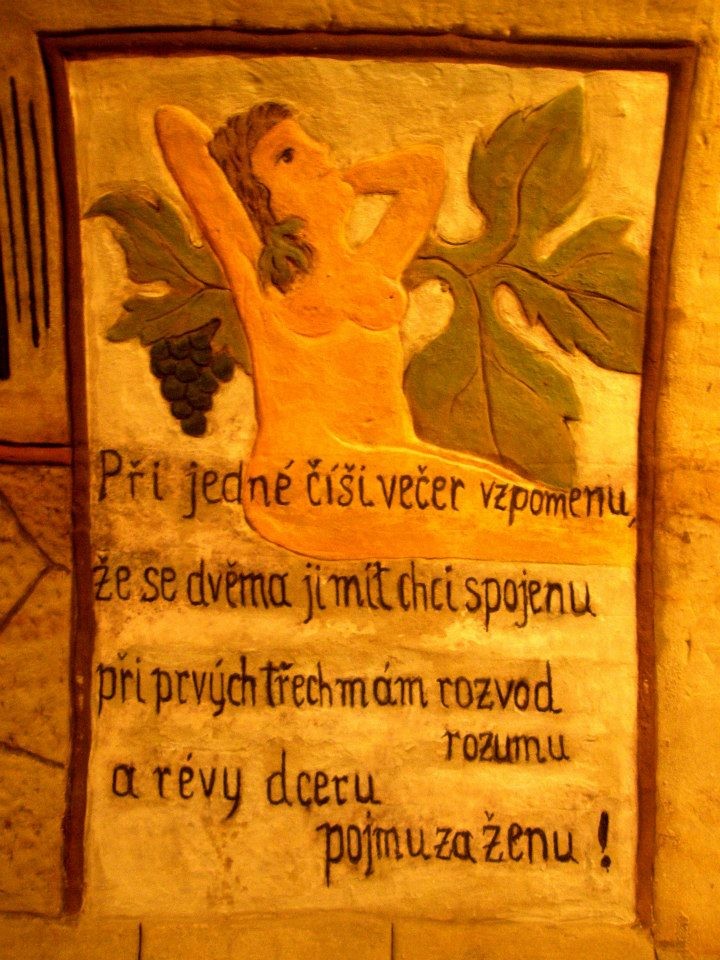 Při jedné číši večer vzpomenu,
že se dvěma ji mít chci spojenu
při prvých třech mám rozvod
rozumu
a révy dceru
pojmu za ženu !